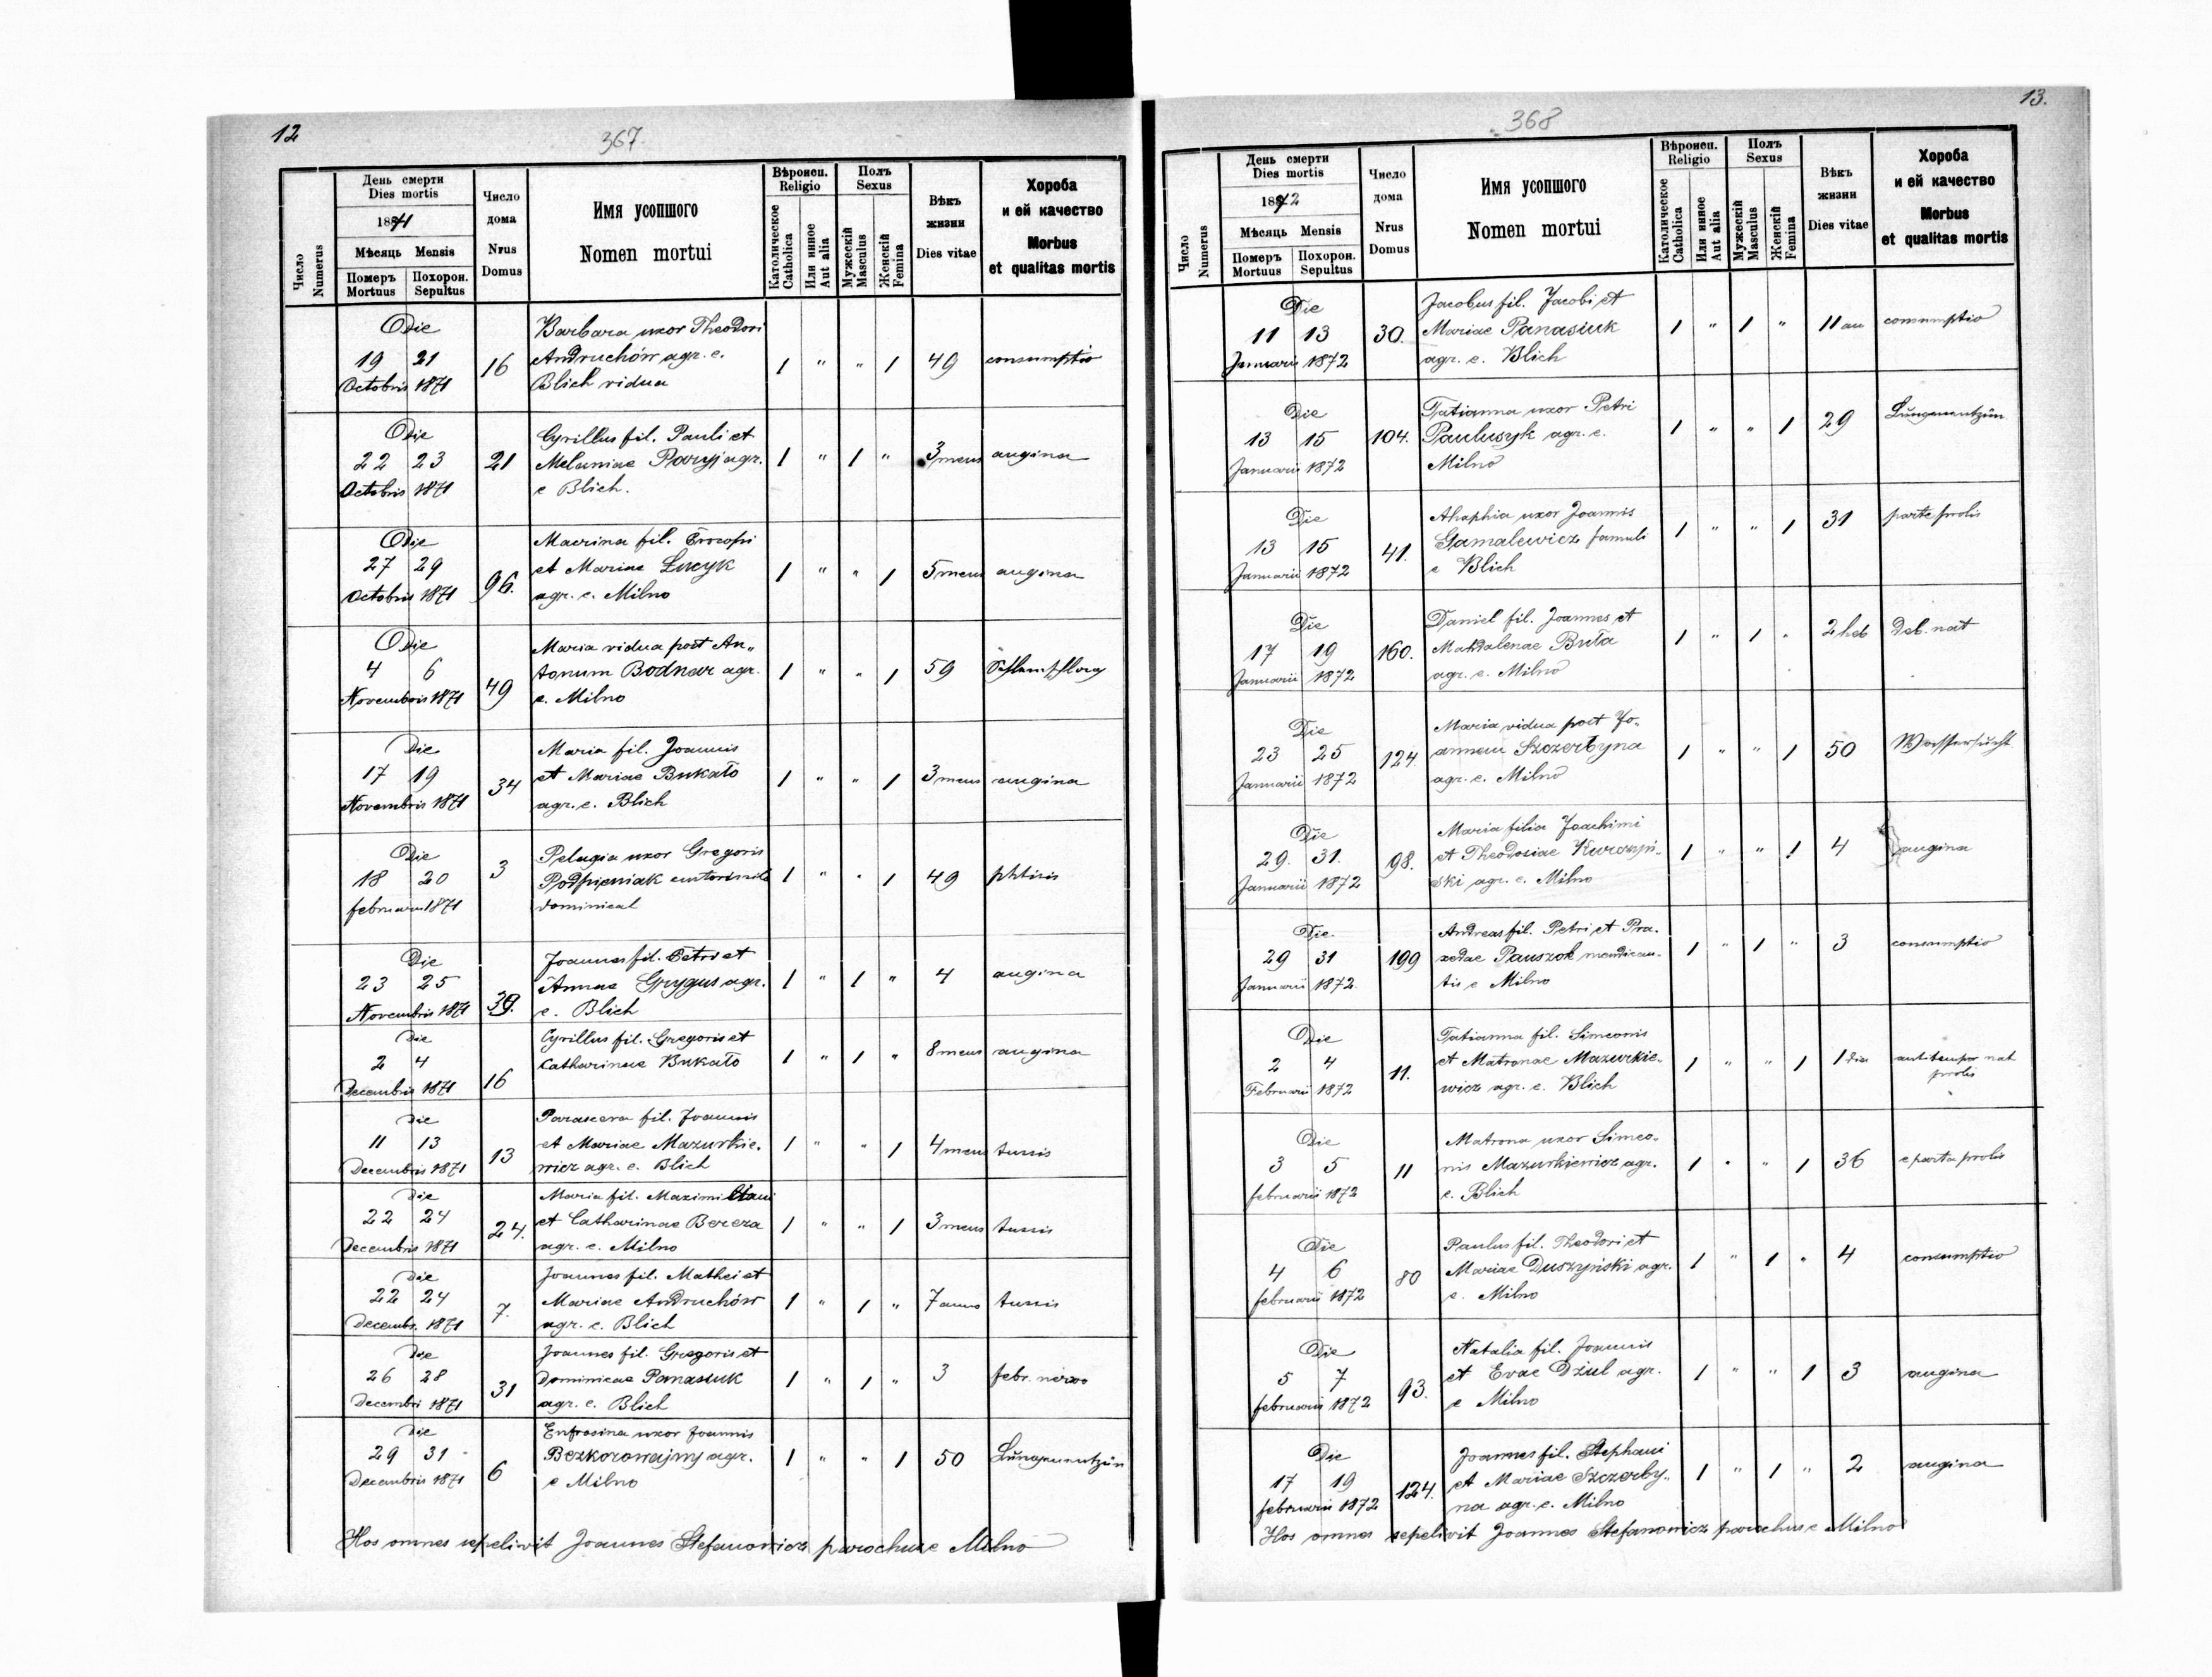 12
367
День смерти
Dies mortis
1871
Мѣсяць Mensis
Померъ Похорон.
Mortuus Sepultus
Число
Numerus
Число
дома
Nrus
Domus
Имя усопшого
Nomen mortui
Вѣроисп.
Religio
Католическое
Catholica
Или инное
Aut alia
Полъ
Sexus
Мужескій
Masculus
Женскій
Femina
Вѣкъ
жизни
Dies vitae
Хороба
и ей качество
Morbus
et qualitas mortis
Die Barbara uxor Theodori
19 21 16 Andruchów agr. e. 1 " " 1 49 consumptio
Octobris 1871 Blich vidua
Die Cyrillus fil. Pauli et
22 23 21 Melaniae Paryj agr. 1 " 1 " 3 mens angina
Octobris 1871 e Blich.
Die Macrina fil. Procopi
27 29 96. et Mariae Łucyk 1 " " 1 5 mens angina
Octobris 1871 agr. e. Milno
Die Maria vidua post An„
4 6 49 tonum Bodnar agr. 1 " " 1 59 Schlamschlag
Novembris 1871 e. Milno
Die Maria fil. Joannis
17 19 34 et Mariae Bukało 1 " " 1 3 mens angina
Novembris 1871 agr. e. Blich
Die Pelagia uxor Gregoris
18 20 3 Podpieniak 1 " " 1 49 phtisis
februarii 1871 dominical
Die Joannes fil. Petri et
23 25 39. Annae Grygus agr. 1 " 1 " 4 angina
Novembris 1871 e. Blich
Die Cyrillus fil. Gregoris et
2 4 16 Catharinae Bukało 1 " 1 " 8 mens angina
Decembris 1871
Die Parasceva fil. Joannis
11 13 13 et Mariae Mazurkie- 1 " " 1 4 mens tussis
Decembris 1871 wicz agr. e. Blich
Die Maria fil. Maximiliani
22 24 24. et Catharinae Bereza 1 " " 1 3 mens tussis
Decembris 1871 agr. e. Milno
Die Joannes fil. Mathei et
22 24 7. Mariae Andruchów 1 " 1 " 7 annus tussis
Decembr. 1871 agr. e. Blich
Die Joannes fil. Gregoris et
26 28 31 Dominicae Panasiuk 1 " 1 " 3 febr. nervo
Decembri 1871 agr. e. Blich
Die Enfrosina uxor Joannis
29 31 6 Bezkorowajnyj agr. 1 " " 1 50 Lungenentzün
Decembris 1871 e Milno
Hos omnes sepelivit Joannes Stefanowicz parochus e Milno
13.
368
День смерти
Dies mortis
1872
Мѣсяць Mensis
Померъ Похорон.
Mortuus Sepultus
Число
Numerus
Число
дома
Nrus
Domus
Имя усопшого
Nomen mortui
Вѣроисп.
Religio
Католическое
Catholica
Или инное
Aut alia
Полъ
Sexus
Мужескій
Masculus
Женскій
Femina
Вѣкъ
жизни
Dies vitae
Хороба
и ей качество
Morbus
et qualitas mortis
Die Jacobus fil. Jacobi et
11 13 30. Mariae Panasiuk 1 " 1 " 11 an consumptio
Januarii 1872 agr. e. Blich
Die Tatianna uxor Petri
13 15 104. Paulusyk agr. e. 1 " " 1 29 Lungenentzün
Januarii 1872 Milno
Die Ahaphia uxor Joannis
13 15 41. Gamalewicz famuli 1 " " 1 31 parte prolis
Januarii 1872 e Blich
Die Daniel fil. Joannes et
17 19 160. Makdalenae Buła 1 " 1 " 2 heb Deb. nat
Januarii 1872 agr. e. Milno
Die Maria vidua post Jo„
23 25 124. annem Szczerbyna 1 " " 1 50 Wassersucht
Januarii 1872 agr. e. Milno
Die Maria filia Joachimi
29. 31. 98. et Theodosiae Kurczyń- 1 " " 1 4 angina
Januarii 1872 ski agr. e. Milno
Die. Andreas fil. Petri et Pra-
29 31 199 xedae Pauszok mendican- 1 " 1 " 3 consumptio
Januarii 1872 tis e Milno
Die Tatianna fil. Simeonis
2 4 11. et Matronae Mazurkie- 1 " " 1 1 dies antitempor nat
Februarii 1872 wicz agr. e. Blich prolis
Die Matrona uxor Simeo-
3 5 11 nis Mazurkiewicz agr. 1 " " 1 36 e parta prolis
februarii 1872 e. Blich
Die Paulus fil. Theodori et
4 6 80 Mariae Duszyński agr. 1 " 1 " 4 consumptio
februarii 1872 e. Milno
Die Natalia fil. Joannis
5 7 93. et Evae Dziul agr. 1 " " 1 3 angina
februarii 1872 e Milno
Die Joannes fil. Stephani
17 19 124. et Mariae Szczerby„ 1 " 1 " 2 angina
februarii 1872 na agr. e. Milno
Hos omnes sepelivit Joannes Stefanowicz parochus e Milno